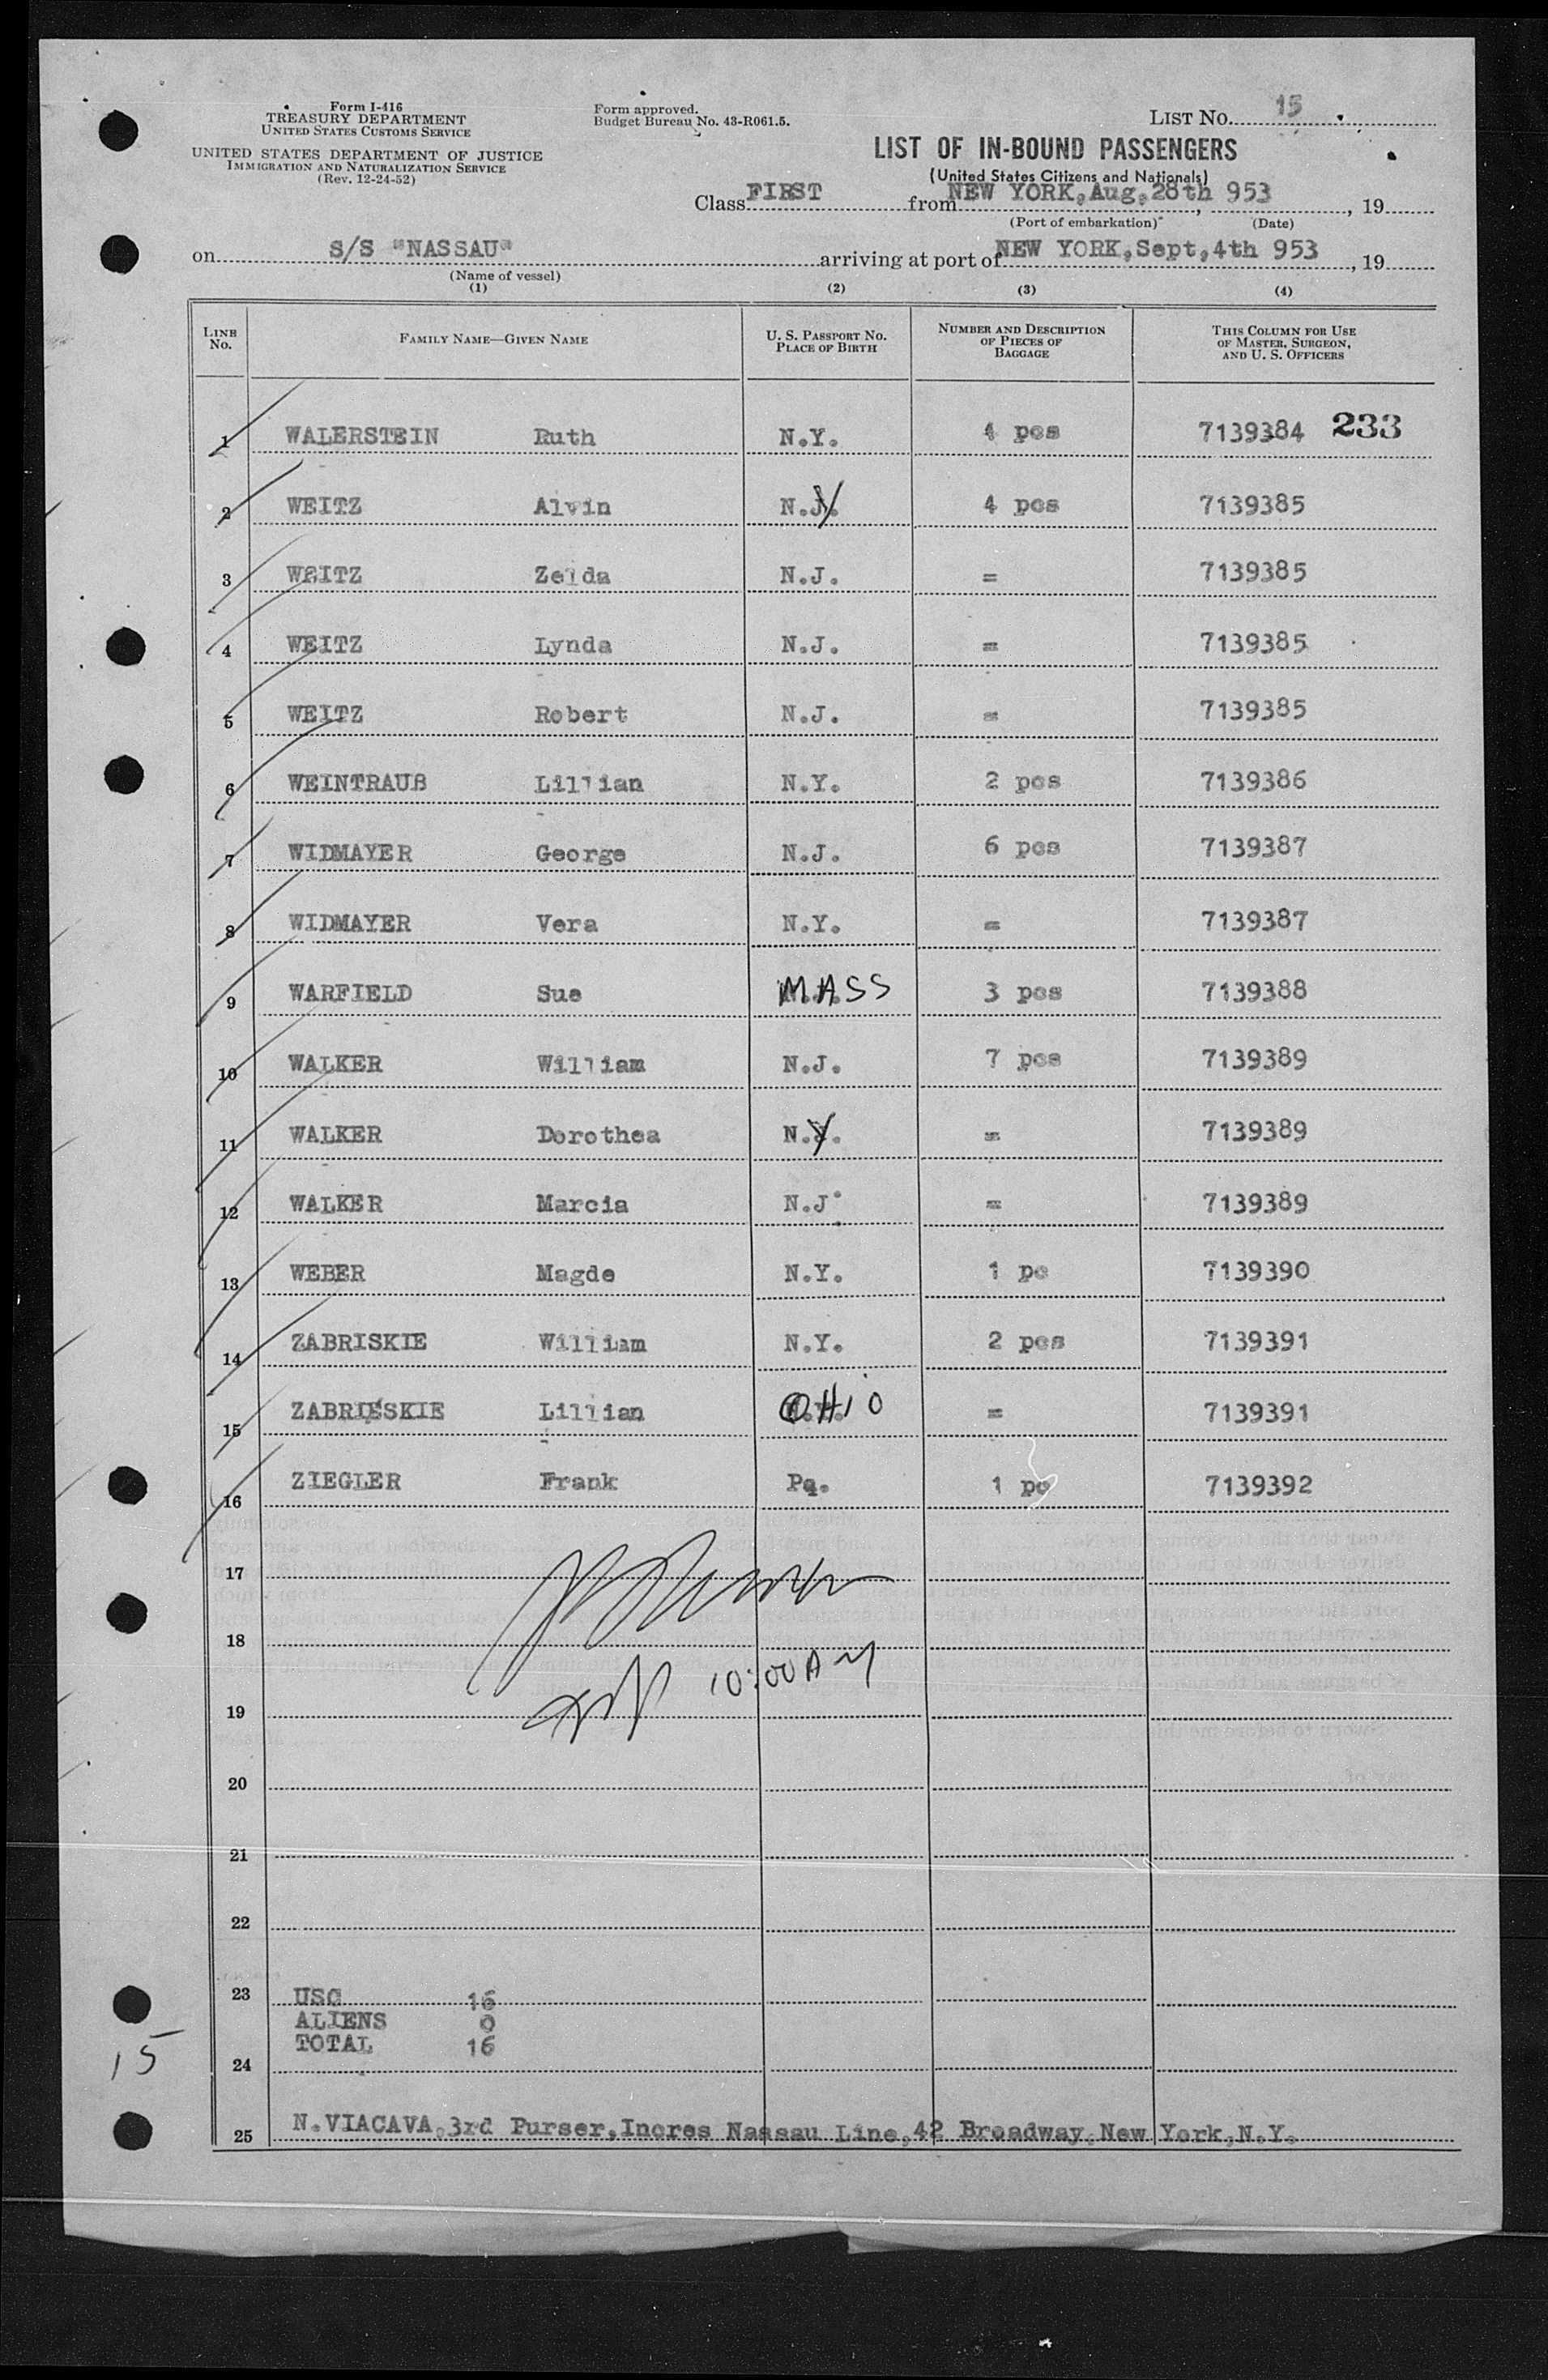 Form I-416
TREASURY DEPARTMENT
UNITED STATES CUSTOMS SERVICE
UNITED STATES DEPARTMENT OF JUSTICE
IMMIGRATION AND NATURALIZATION SERVICE
(Rev. 12-24-52)
Form approved.
Budget Bureau No. 43-R061.5.
LIST No. 15
LIST OF IN-BOUND PASSENGERS
(United States Citizens and Nationals)
Class FIRST from NEW YORK, Aug, 28th 953, 19
(Port of embarkation) (Date)
on S/S "NASSAU" arriving at port of NEW YORK, Sept, 4th 953, 19
(Name of vessel)
(1) (2) (3) (4)
LINE No. FAMILY NAME—GIVEN NAME U. S. PASSPORT No. PLACE OF BIRTH NUMBER AND DESCRIPTION OF PIECES OF BAGGAGE THIS COLUMN FOR USE OF MASTER, SURGEON, AND U. S. OFFICERS
1 WALERSTEIN Ruth N.Y. 4 pcs 7139384 233
2 WEITZ Alvin N.Y. 4 pcs 7139385
3 WEITZ Zelda N.J. = 7139385
4 WEITZ Lynda N.J. = 7139385
5 WEITZ Robert N.J. = 7139385
6 WEINTRAUB Lillian N.Y. 2 pcs 7139386
7 WIDMAYER George N.J. 6 pcs 7139387
8 WIDMAYER Vera N.Y. = 7139387
9 WARFIELD Sue MASS 3 pcs 7139388
10 WALKER William N.J. 7 pcs 7139389
11 WALKER Dorothea N.Y. = 7139389
12 WALKER Marcia N.J. = 7139389
13 WEBER Magde N.Y. 1 pc 7139390
14 ZABRISKIE William N.Y. 2 pcs 7139391
15 ZABRIESKIE Lillian OHIO = 7139391
16 ZIEGLER Frank Pa. 1 pc 7139392
17
18
10:00 AM
19
20
21
22
23 USC 16
ALIENS 0
TOTAL 16
24
15
25 N.VIACAVA, 3rd Purser, Incres Nassau Line, 42 Broadway, New York, N.Y.